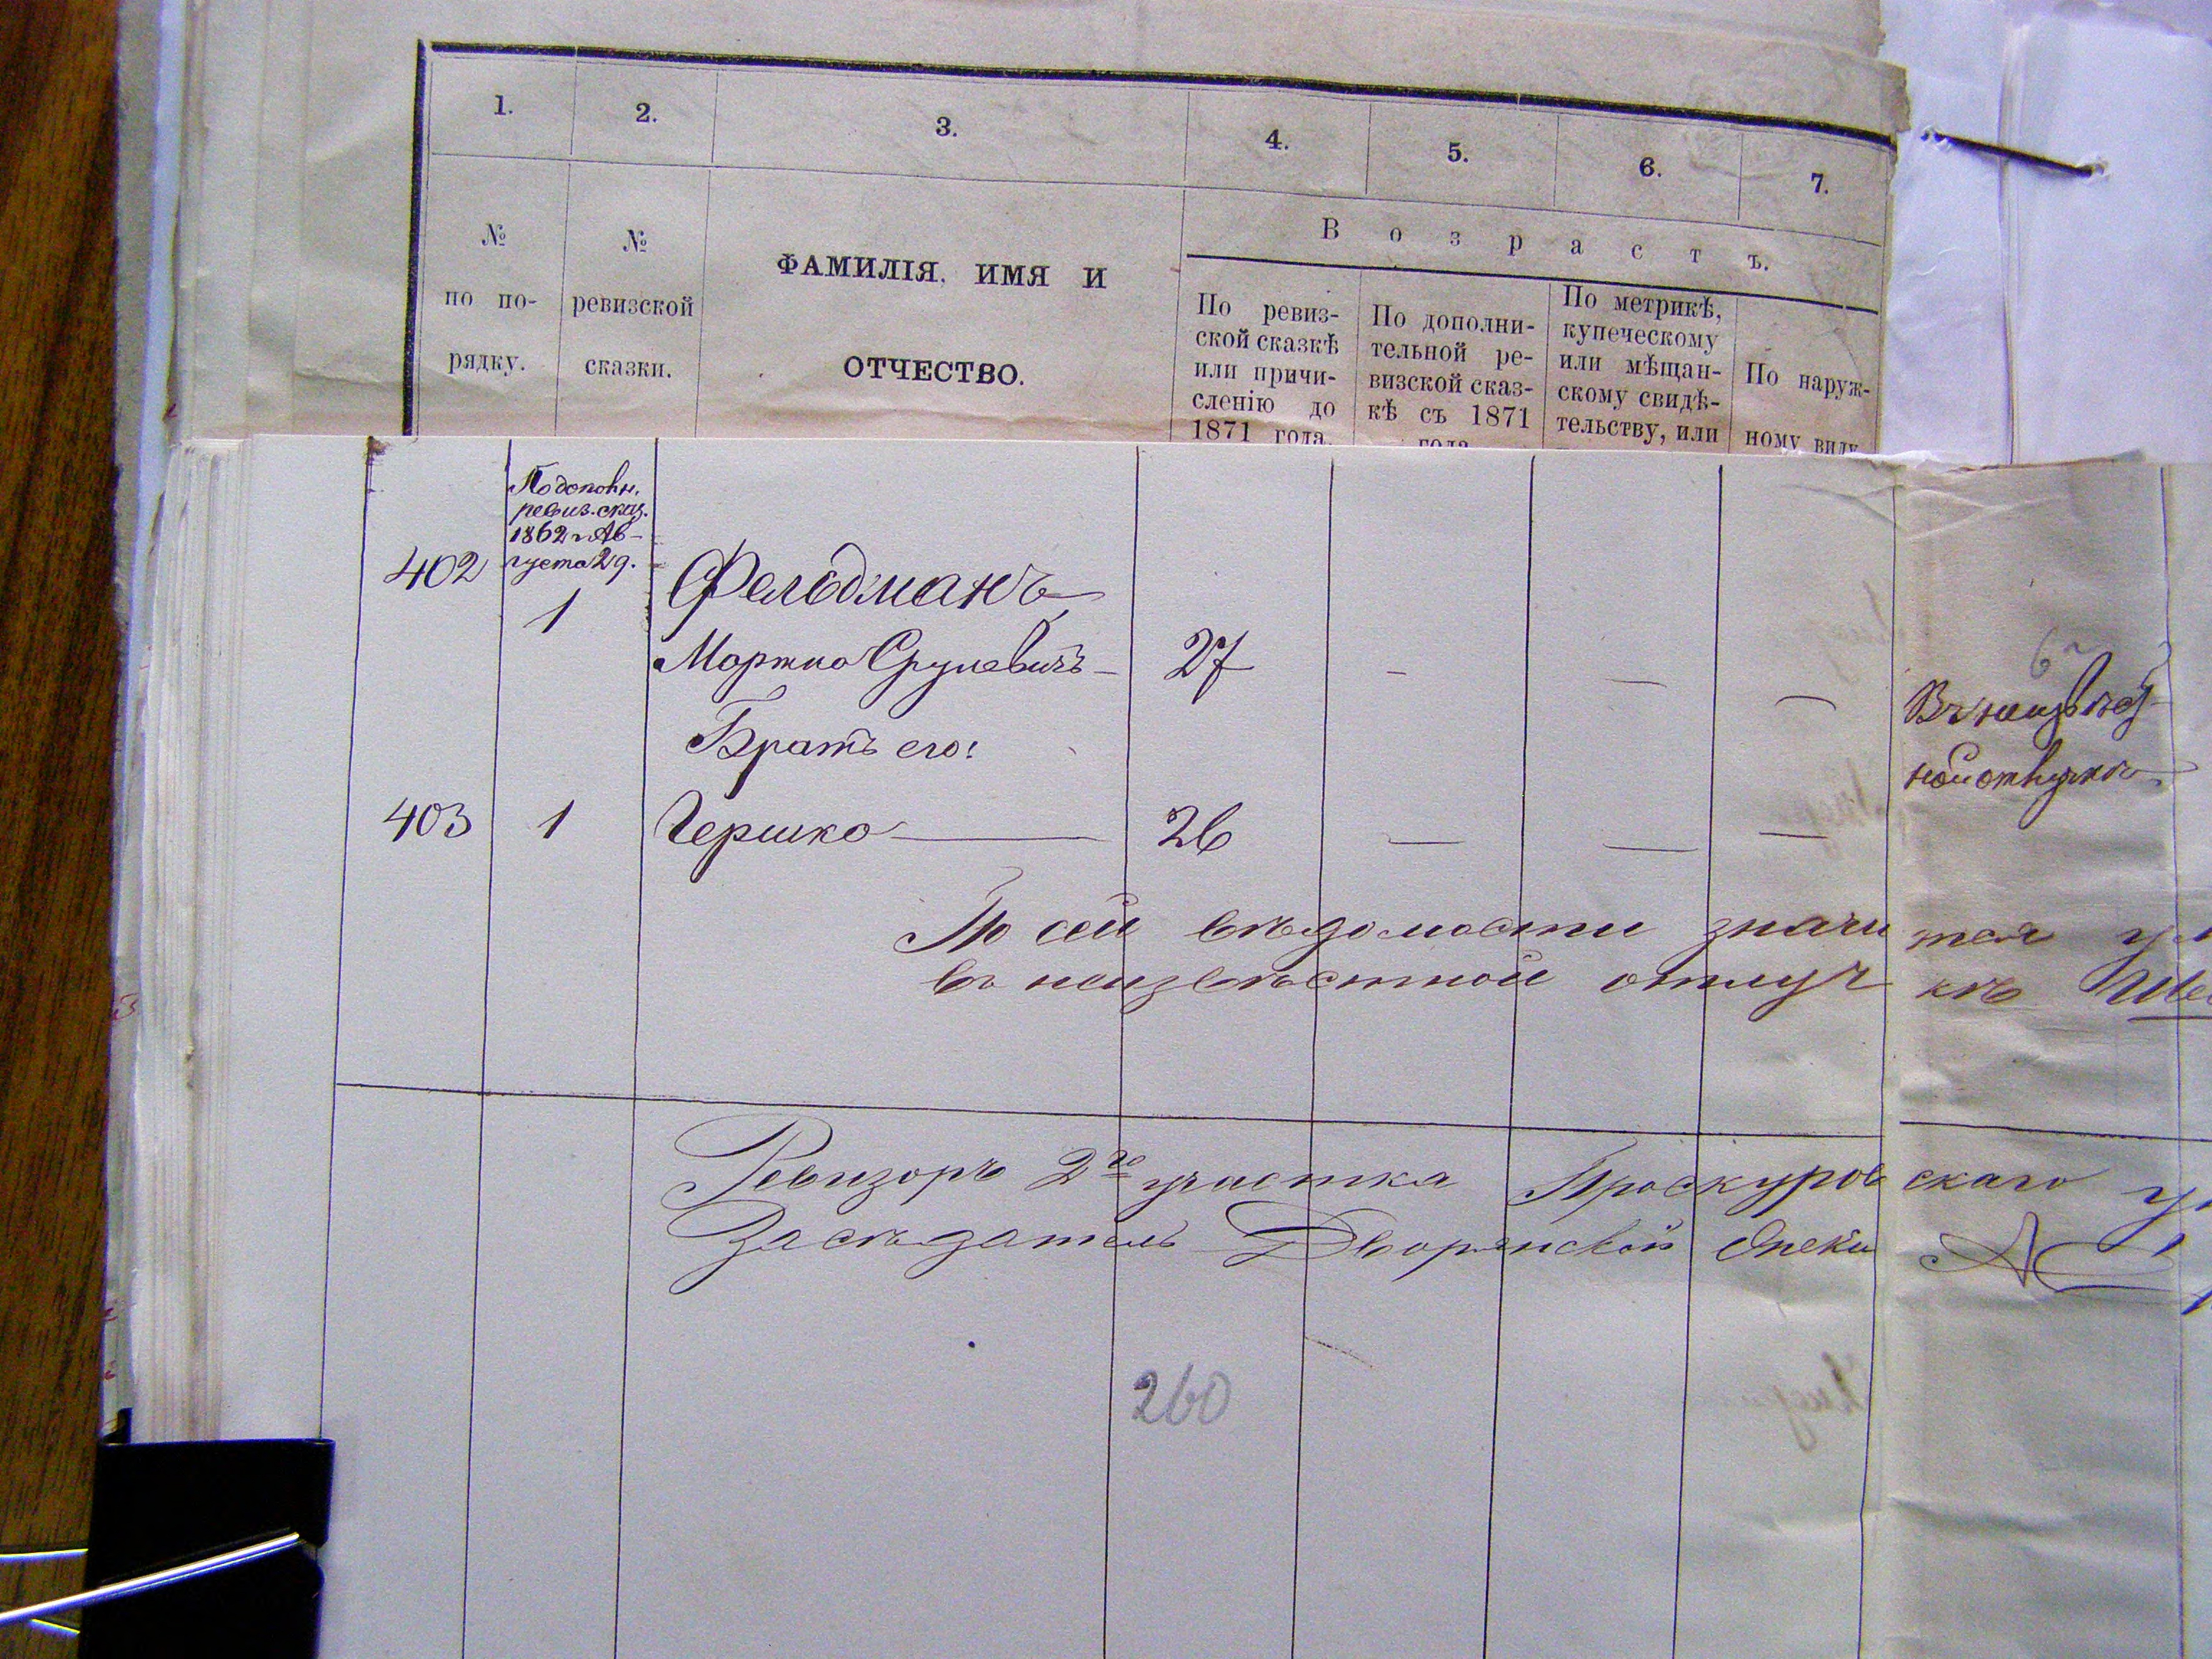 1.
2.
3.
4.
5.
6.
7.
№
по по-
рядку.
№
ревизской
сказки.
ФАМИЛІЯ, ИМЯ И
ОТЧЕСТВО.
Возрастъ.
По ревиз-
ской сказкѣ
или причи-
сленію до
1871 года.
По дополни-
тельной ре-
визской сказ-
кѣ съ 1871
года
По метрикѣ,
купеческому
или мѣщан-
скому свидѣ-
тельству, или
По наруж-
ному виду
402
По дополн.
ревиз. сказ.
1862 г. Ав-
густа 29.
1
Фельдманъ
Мортко Срулевичъ — 27 — — —
Въ неизвѣст-
ной отлучкѣ
Братъ его:
403 1 Гершко — 26 — — —
По сей вѣдомости значится
въ неизвѣстной отлучкѣ
Ревизоръ 2го участка Проскуровскаго у
Засѣдатель Дворянской Опеки
260